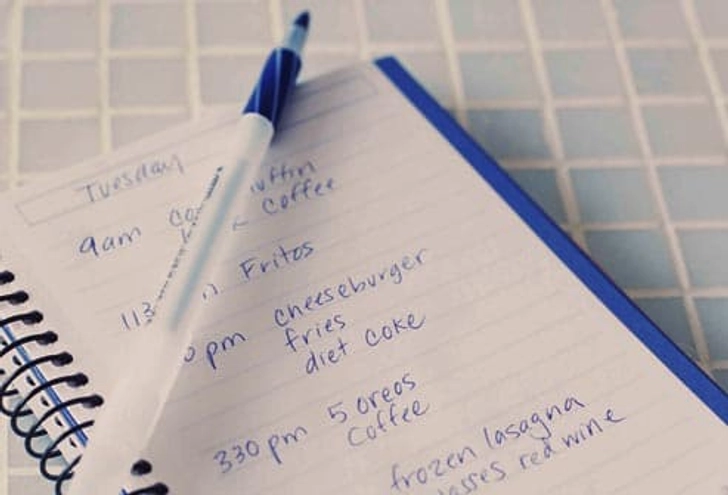 Tuesday
9am
Coffee
Fritos
pm cheeseburger
fries
diet coke
330pm 5 oreos
Coffee
frozen lasagna
red wine